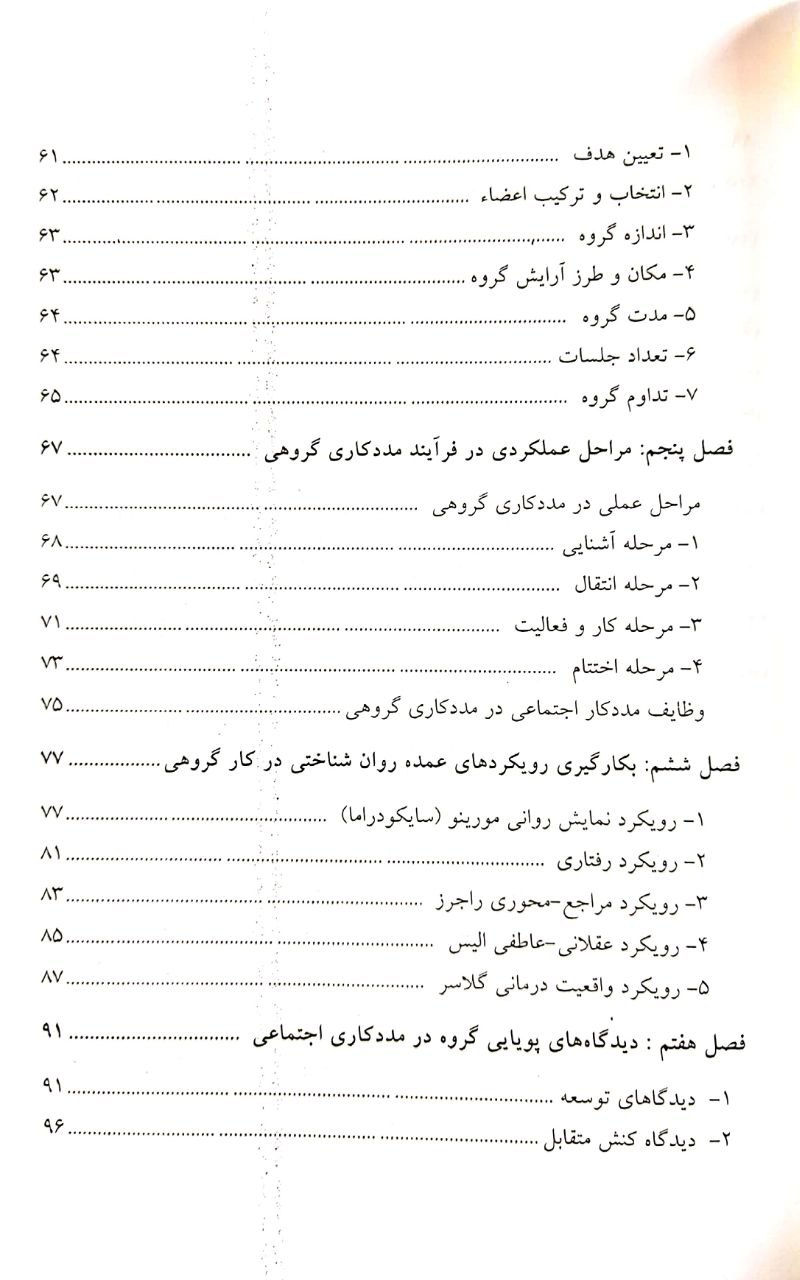 ۱- تعیین هدف ........................ ۶۱
۲- انتخاب و ترکیب اعضاء ........................ ۶۲
۳- اندازه گروه ........................ ۶۳
۴- مکان و طرز آرایش گروه ........................ ۶۳
۵- مدت گروه ........................ ۶۴
۶- تعداد جلسات ........................ ۶۴
۷- تداوم گروه ........................ ۶۵
فصل پنجم: مراحل عملکردی در فرآیند مددکاری گروهی ........................ ۶۷
مراحل عملی در مددکاری گروهی ........................ ۶۷
۱- مرحله آشنایی ........................ ۶۸
۲- مرحله انتقال ........................ ۶۹
۳- مرحله کار و فعالیت ........................ ۷۱
۴- مرحله اختتام ........................ ۷۳
وظایف مددکار اجتماعی در مددکاری گروهی ........................ ۷۵
فصل ششم: بکارگیری رویکردهای عمده روان شناختی در کار گروهی ........................ ۷۷
۱- رویکرد نمایش روانی مورینو (سایکودراما) ........................ ۷۷
۲- رویکرد رفتاری ........................ ۸۱
۳- رویکرد مراجع-محوری راجرز ........................ ۸۳
۴- رویکرد عقلانی-عاطفی الیس ........................ ۸۵
۵- رویکرد واقعیت درمانی گلاسر ........................ ۸۷
فصل هفتم : دیدگاه‌های پویایی گروه در مددکاری اجتماعی ........................ ۹۱
۱- دیدگاهای توسعه ........................ ۹۱
۲- دیدگاه کنش متقابل ........................ ۹۶